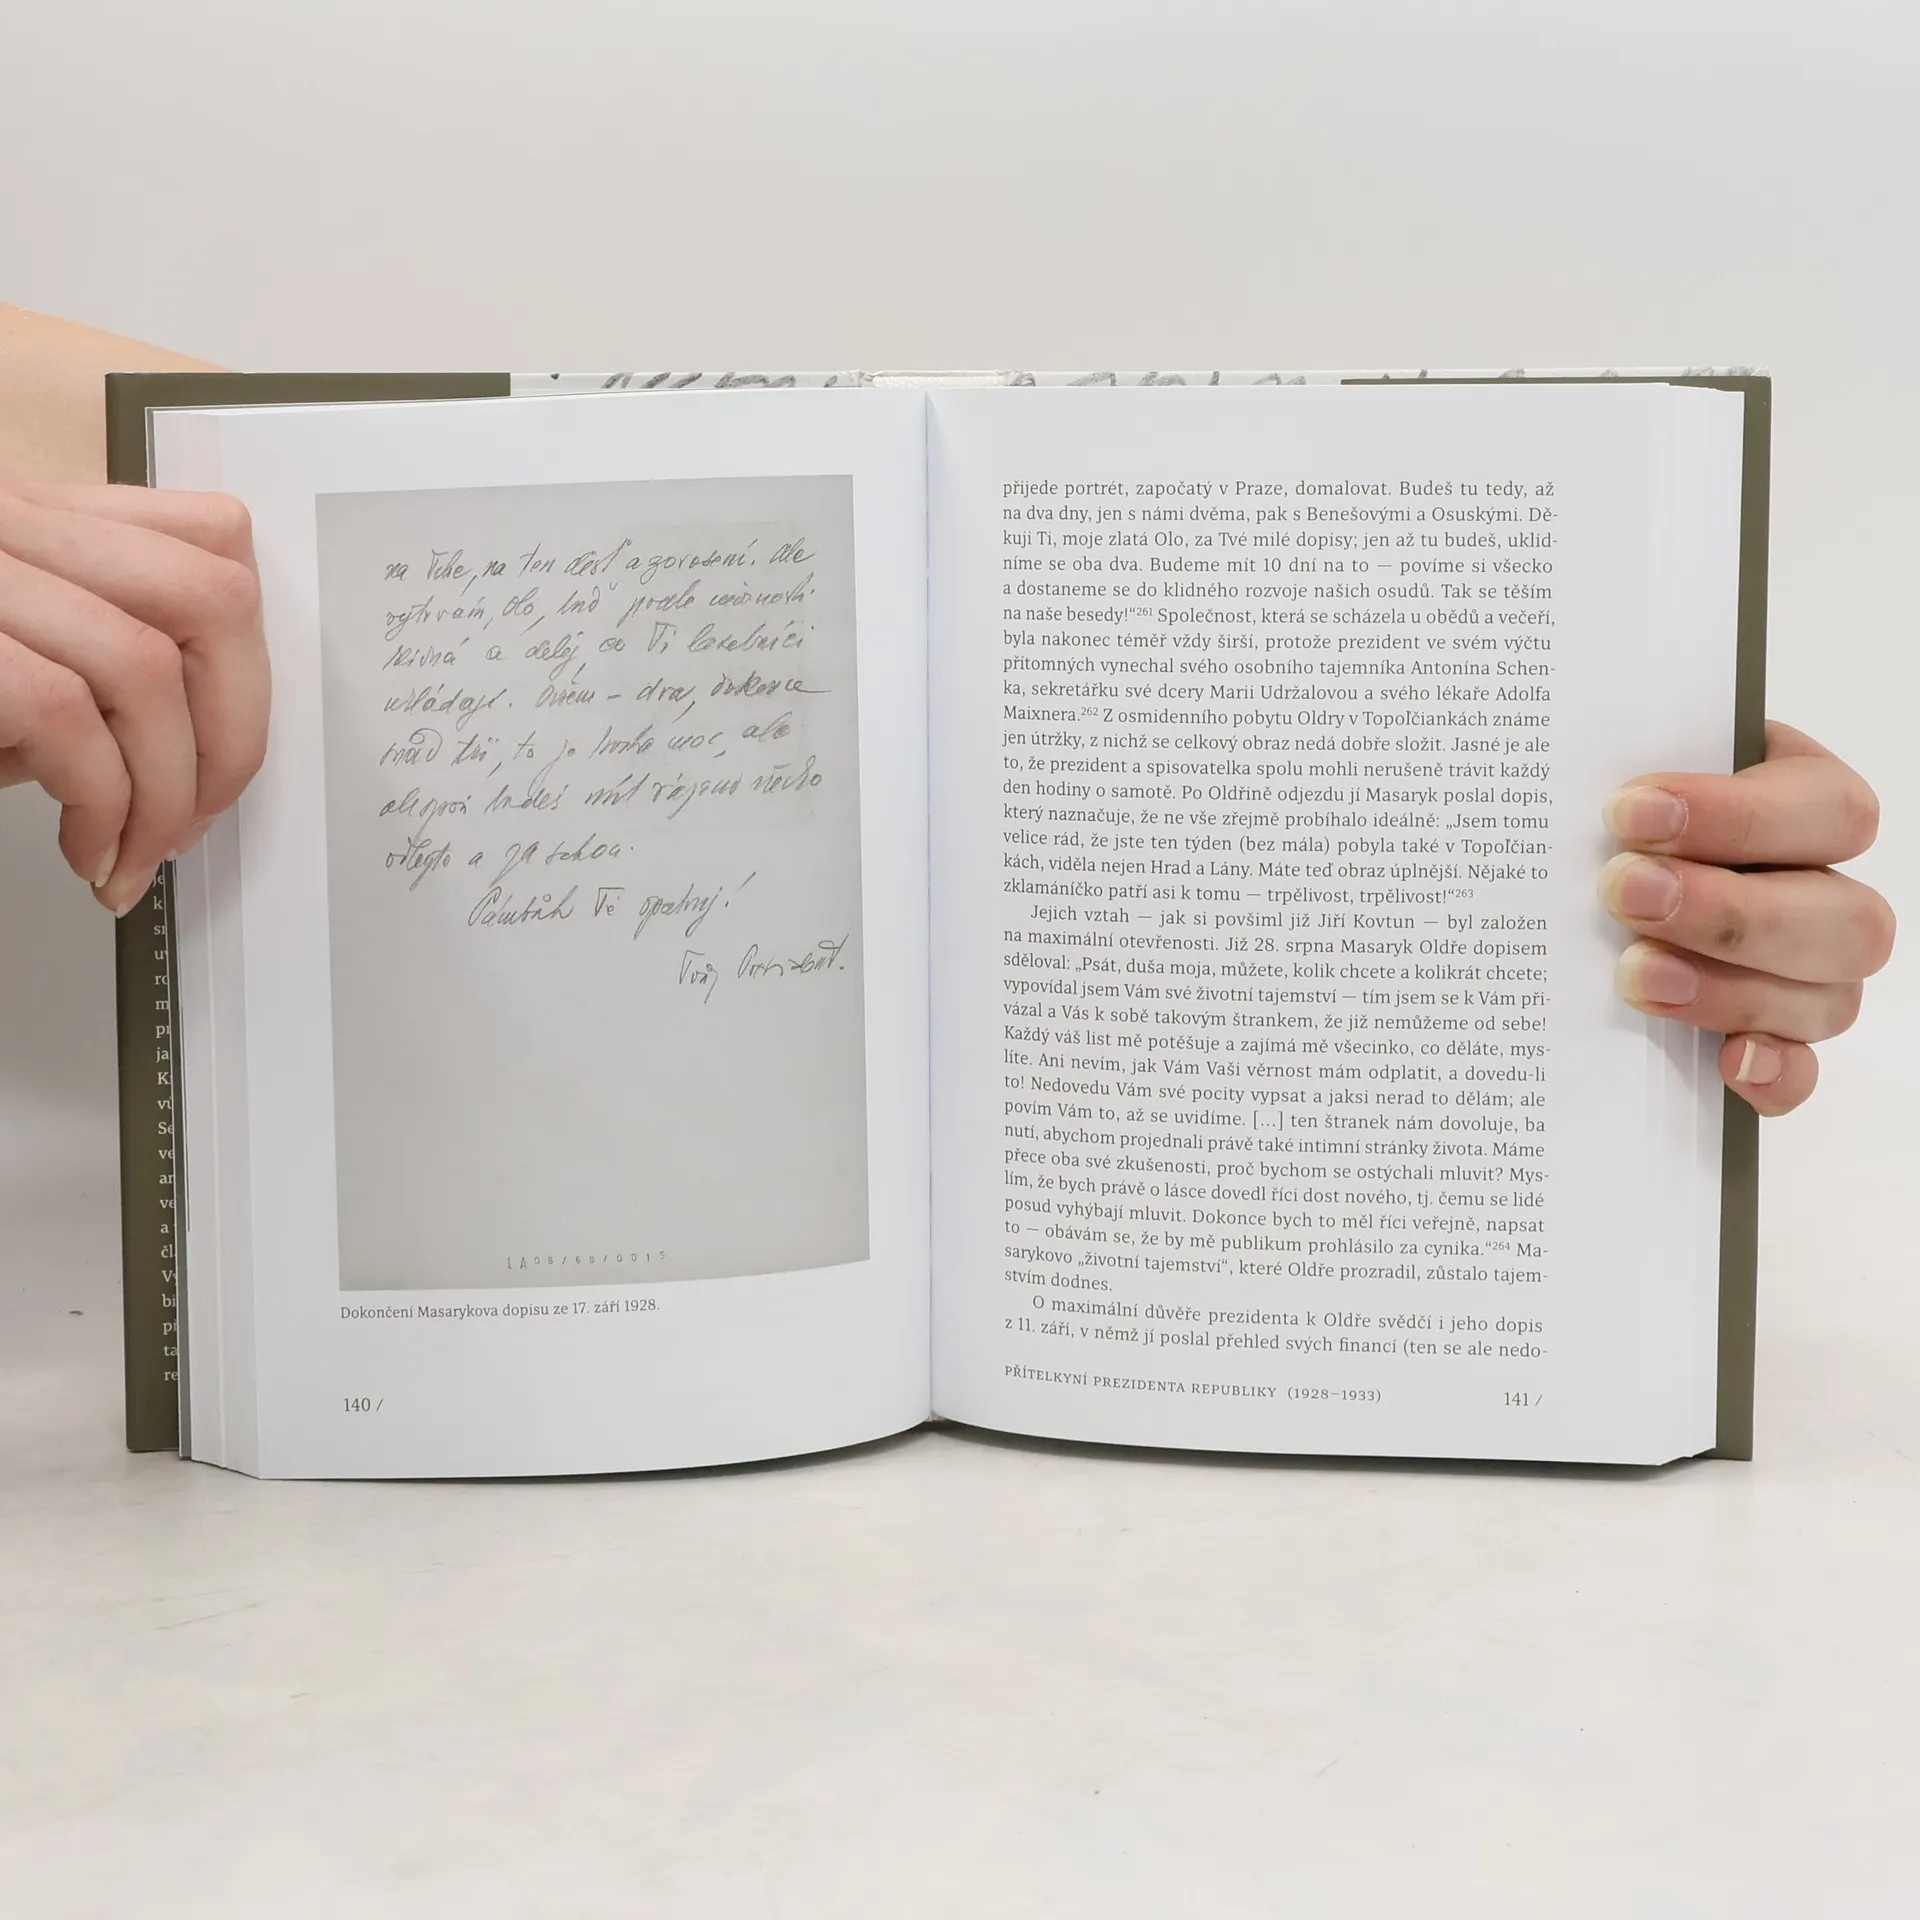 ale
Olo,
a dělej, co Ti
Ovšem – dva, dokonce
snad tři, to je trochu moc, ale
alespoň budeš mít
a
Pámbůh Tě opatruj!
Tvůj
LA 08/68/0015
Dokončení Masarykova dopisu ze 17. září 1928.
140 /
je
k
ro
m
ja
vů
Se
ve
ve
a
čl
bi
ta
re
přijede portrét, započatý v Praze, domalovat. Budeš tu tedy, až
na dva dny, jen s námi dvěma, pak s Benešovými a Osuskými. Dě-
kuji Ti, moje zlatá Olo, za Tvé milé dopisy; jen až tu budeš, uklid-
níme se oba dva. Budeme mít 10 dní na to — povíme si všecko
a dostaneme se do klidného rozvoje našich osudů. Tak se těším
na naše besedy!“261 Společnost, která se scházela u obědů a večeří,
byla nakonec téměř vždy širší, protože prezident ve svém výčtu
přítomných vynechal svého osobního tajemníka Antonína Schen-
ka, sekretářku své dcery Marii Udržalovou a svého lékaře Adolfa
Maixnera.262 Z osmidenního pobytu Oldry v Topoľčiankách známe
jen útržky, z nichž se celkový obraz nedá dobře složit. Jasné je ale
to, že prezident a spisovatelka spolu mohli nerušeně trávit každý
den hodiny o samotě. Po Oldřině odjezdu jí Masaryk poslal dopis,
který naznačuje, že ne vše zřejmě probíhalo ideálně: „Jsem tomu
velice rád, že jste ten týden (bez mála) pobyla také v Topoľčian-
kách, viděla nejen Hrad a Lány. Máte teď obraz úplnější. Nějaké to
zklamáníčko patří asi k tomu — trpělivost, trpělivost!“263
Jejich vztah — jak si povšiml již Jiří Kovtun — byl založen
na maximální otevřenosti. Již 28. srpna Masaryk Oldře dopisem
sděloval: „Psát, duša moja, můžete, kolik chcete a kolikrát chcete;
vypovídal jsem Vám své životní tajemství — tím jsem se k Vám při-
vázal a Vás k sobě takovým štrankem, že již nemůžeme od sebe!
Každý váš list mě potěšuje a zajímá mě všecinko, co děláte, mys-
líte. Ani nevím, jak Vám Vaši věrnost mám odplatit, a dovedu-li
to! Nedovedu Vám své pocity vypsat a jaksi nerad to dělám; ale
povím Vám to, až se uvidíme. [...] ten štranek nám dovoluje, ba
nutí, abychom projednali právě také intimní stránky života. Máme
přece oba své zkušenosti, proč bychom se ostýchali mluvit? Mys-
lím, že bych právě o lásce dovedl říci dost nového, tj. čemu se lidé
posud vyhýbají mluvit. Dokonce bych to měl říci veřejně, napsat
to — obávám se, že by mě publikum prohlásilo za cynika.“264 Ma-
sarykovo „životní tajemství“, které Oldře prozradil, zůstalo tajem-
stvím dodnes.
O maximální důvěře prezidenta k Oldře svědčí i jeho dopis
z 11. září, v němž jí poslal přehled svých financí (ten se ale nedo-
PŘÍTELKYNÍ PREZIDENTA REPUBLIKY (1928–1933)
141 /